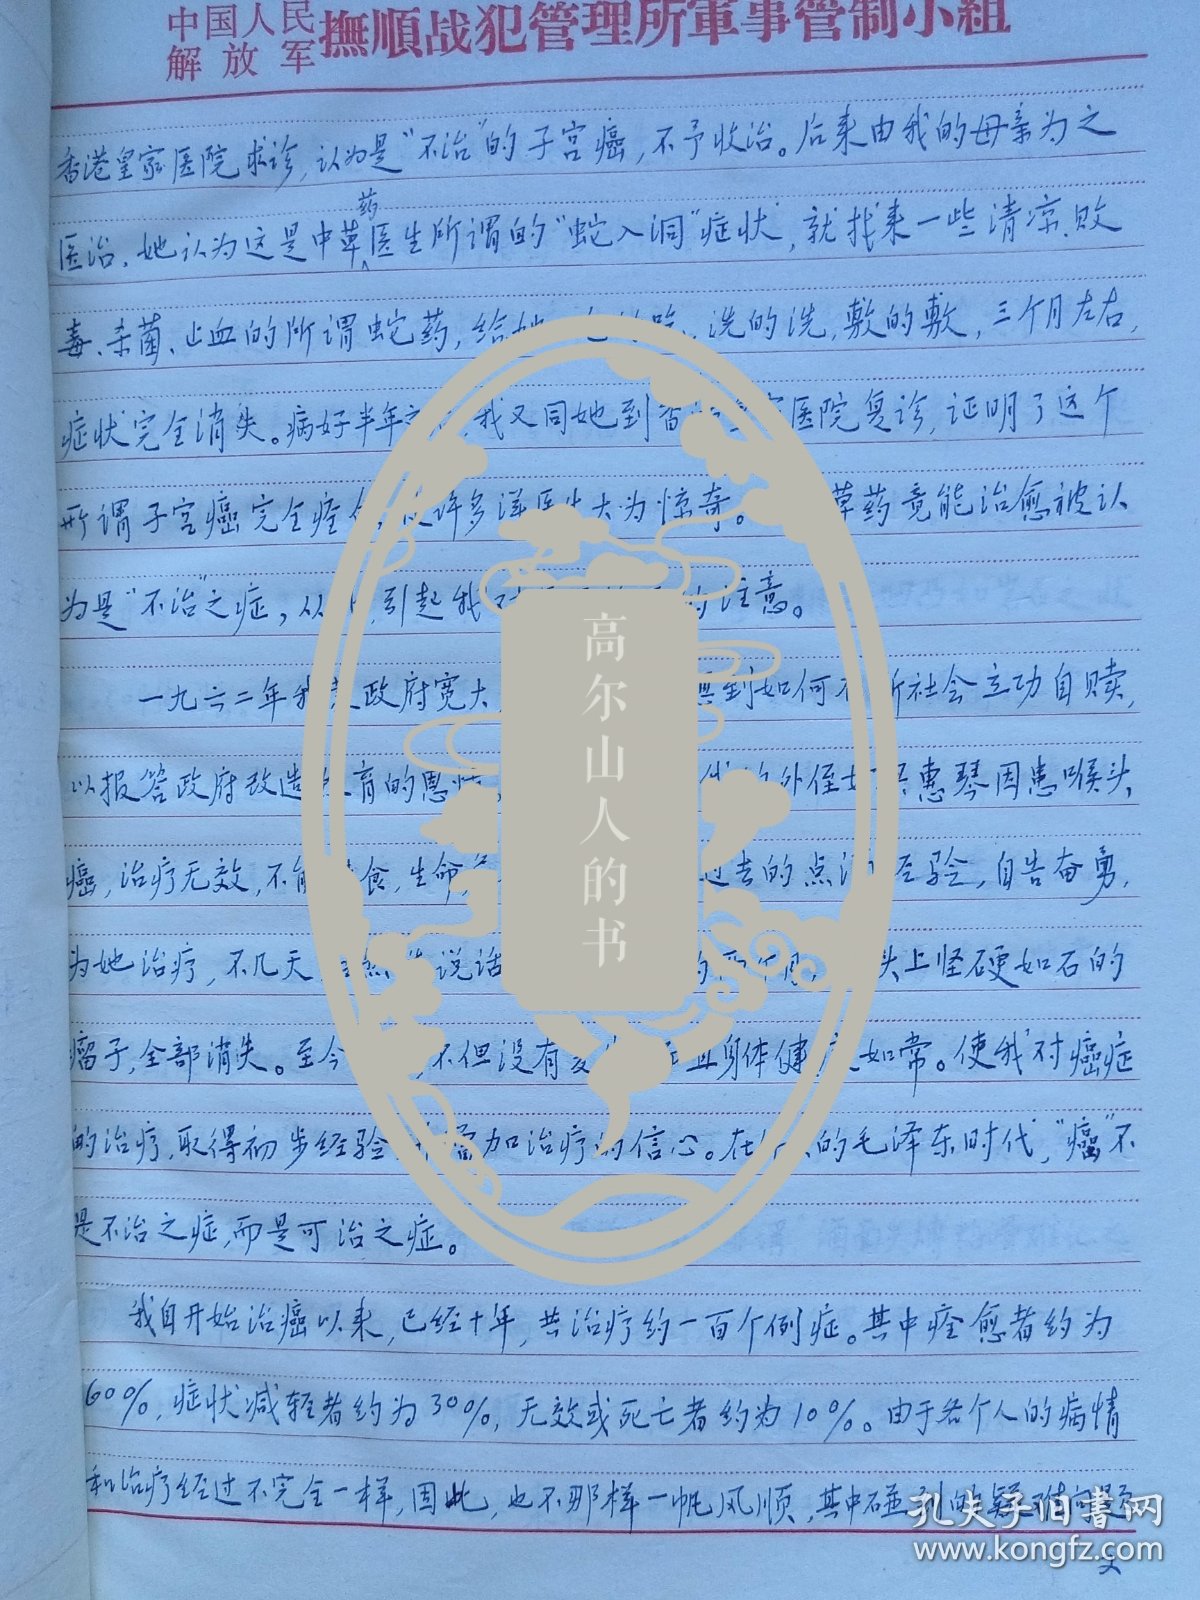 中国人民
解放军
撫順战犯管理所軍事管制小組
香港皇家医院求诊,认为是"不治"的子宫癌,不予收治。后来由我的母亲为之
医治、她认为这是中草药医生所谓的"蛇入洞"症状,就找来一些清凉、败
毒、杀菌、止血的所谓蛇药,给她 洗的洗,敷的敷,三个月左右,
症状完全消失。病好半年之 我又同她到香 医院复诊,证明了这个
所谓子宫癌完全痊 许多洋医生大为惊奇。 草药竟能治愈被认
为是"不治"之症,从 引起我 注意。
一九六二年我 政府宽大 到如何 社会立功自赎,
以报答政府改造 育的恩 外侄女 惠琴因患喉头
癌,治疗无效,不能 食,生命 过去的点 经验,自告奋勇,
为她治疗,不几天 说话 头上坚硬如石的
瘤子,全部消失。至今 不但没有 身体健 如常。使我对癌症
的治疗,取得初步经验 加治疗的信心。在 的毛泽东时代,"癌"不
是不治之症,而是可治之症。
我自开始治癌以来,已经十年,共治疗约一百个例症。其中痊愈者约为
60%,症状减轻者约为30%,无效或死亡者约为10%。由于各个人的病情
和治疗经过不完全一样,因此,也不那样一帆风顺,其中碰到的疑难问题
高尔山人的书
孔夫子旧書网
www.kongfz.com